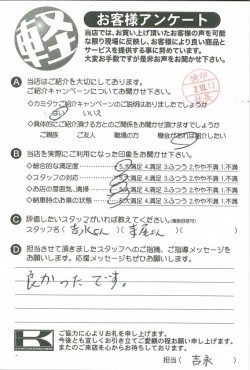 軽
お客様アンケート
当店では、お買い上げ頂いたお客様の声を可能
な限り現場に反映し、お客様により良い商品と
サービスを提供する事に努めています。
大変お手数ですが是非お声をお聞かせ下さい。
A 当店はご紹介を大切にしております。
ご紹介キャンペーンについてお聞かせ下さい。
◇カミタケご紹介キャンペーンのご説明はありましたでしょうか
はい いいえ
◇具体的にご紹介頂ける方とのご関係をお聞かせ頂けますでしょうか
ご親族 ご友人 職場の方 機会があれば紹介したい
B 当店を実際にご利用になった印象をお聞かせ下さい。
◇総合的な満足度 5.大満足 4.満足 3.ふつう 2.やや不満 1.不満
◇スタッフの対応 5.大満足 4.満足 3.ふつう 2.やや不満 1.不満
◇お店の雰囲気、清掃 5.大満足 4.満足 3.ふつう 2.やや不満 1.不満
◇納車時のお車の状態 5.大満足 4.満足 3.ふつう 2.やや不満 1.不満
C 評価したいスタッフがいれば教えてください。(複数回答可)
スタッフ名( 吉永さん )( さん )
D 担当させて頂きましたスタッフへのご指摘、ご指導メッセージを
お願いします。応援メッセージもぜひお願いします。
良かったです。
K
ご協力に心よりお礼を申し上げます。
今後とも宜しくお引き立てご愛顧の程お願い申し上げます。
またのご来店を心からお待ちしております。
担当( 吉永 )